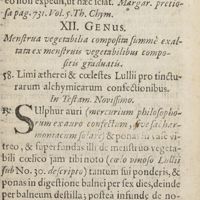 ed non expedit, ut hæc sciat. Margar. pretio-
sa pag. 731. Vol. 5. Th. Chym.
XII. GENUS.
Menstrua vegetabilia composita summè exal-
tata ex menstruis vegetabilibus compo-
sitis graduatis.
58. Limi ætherei & cœlestes Lullii pro tinctu-
rarum alchymicarum confectionibus.
In Testam. Novissimo.
Sulphur auri (mercurium philosopho-
rum ex auro confectum,
montacium solare) & ponas in vase vi-
treo, & superfundas illi de menstruo vegeta-
bili cœlico jam tibi noto (cœlo vinoso Lullii
sub No. 30. descripto) tantum sui ponderis, &
ponas in digestione balnei per sex dies, deinde
per balneum destilla, postea infunde de no-